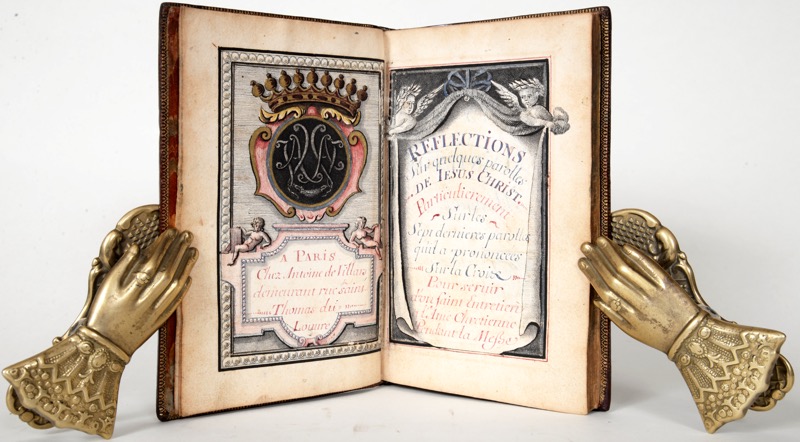 A PARIS
Chez Antoine de Villars
demeurant rue saint
Thomas du
Louure
REFLECTIONS
Sur quelques parolles
DE JESUS CHRIST,
Particulierement
Sur les
Sept dernieres parolles
qu'il a prononcées
Sur la Croix
Pour seruir
d'un saint Entretien
L'Ame Chretienne
Pendant la Messe